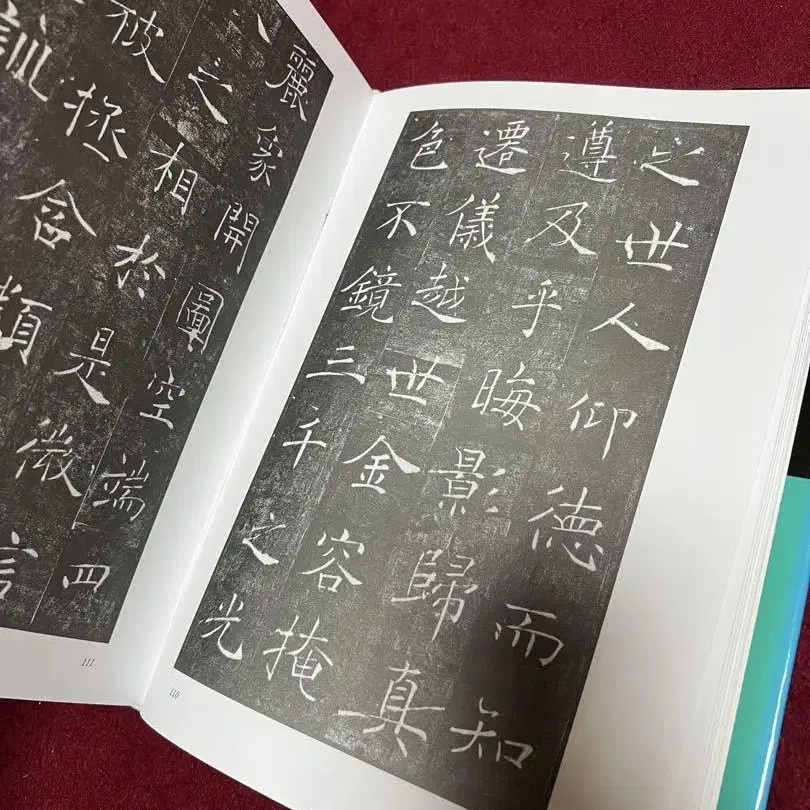 之世人仰德而知
遵及乎晦影歸真
遷儀越世金容掩
色不鏡三千之光
110
麗象開圖空端四
八之相於是微言
被拯含類
訓
111